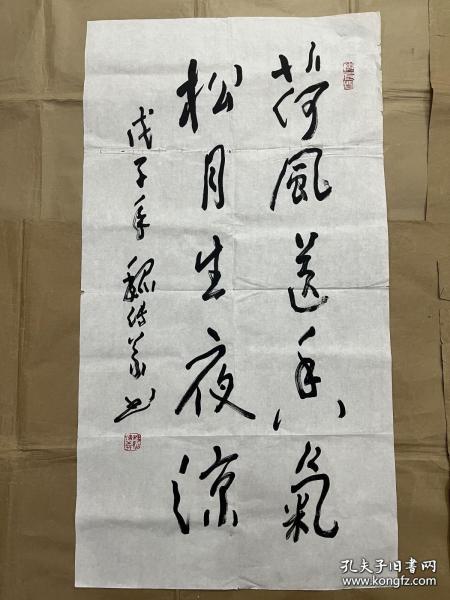 荷風送香氣
松月生夜涼
戊子年 魏传义书
孔夫子旧书网
www.kongfz.com